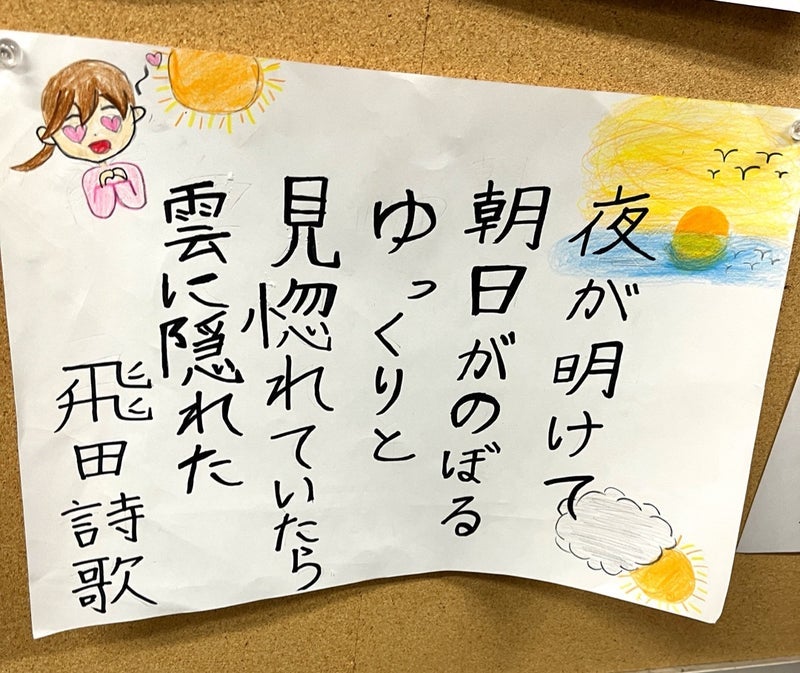 夜が明けて
朝日がのぼる
ゆっくりと
見惚れていたら
雲に隠れた
飛田詩歌